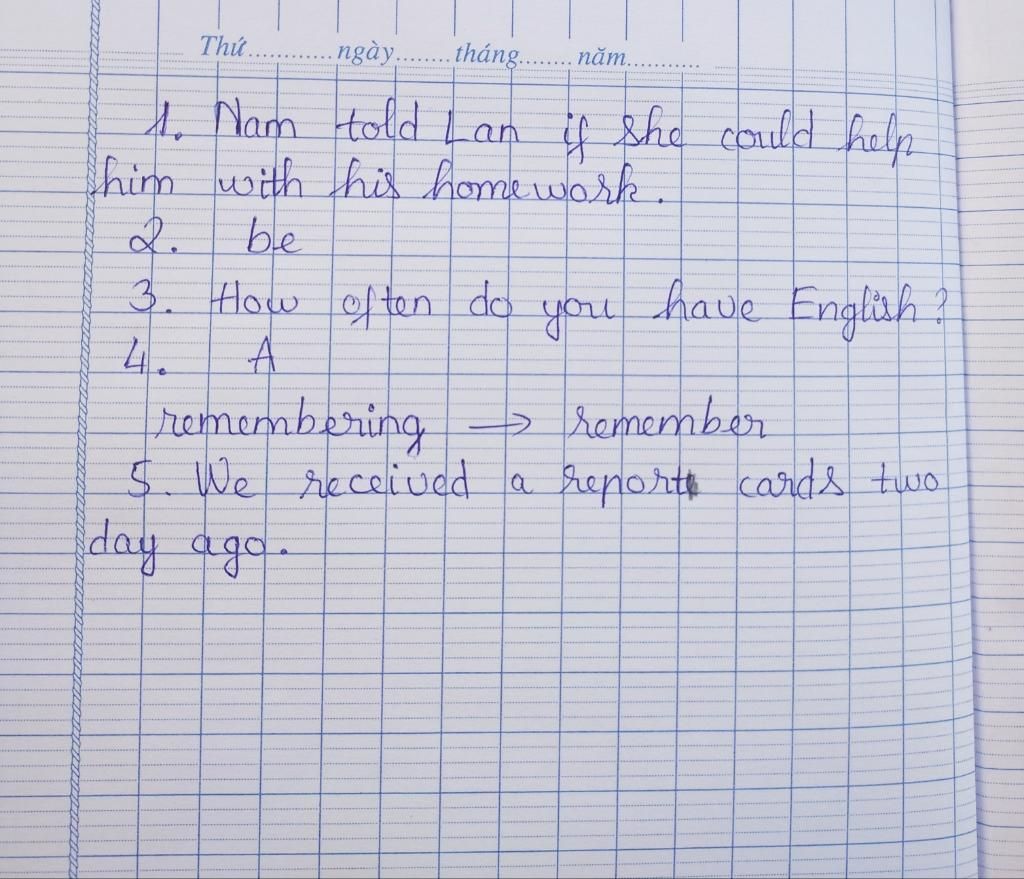 Thứ............ngày........tháng........năm...........
1. Nam told Lan if she could help
him with his homework.
2. be
3. How often do you have English?
4. A
remembering → remember
5. We received a report cards two
day ago.